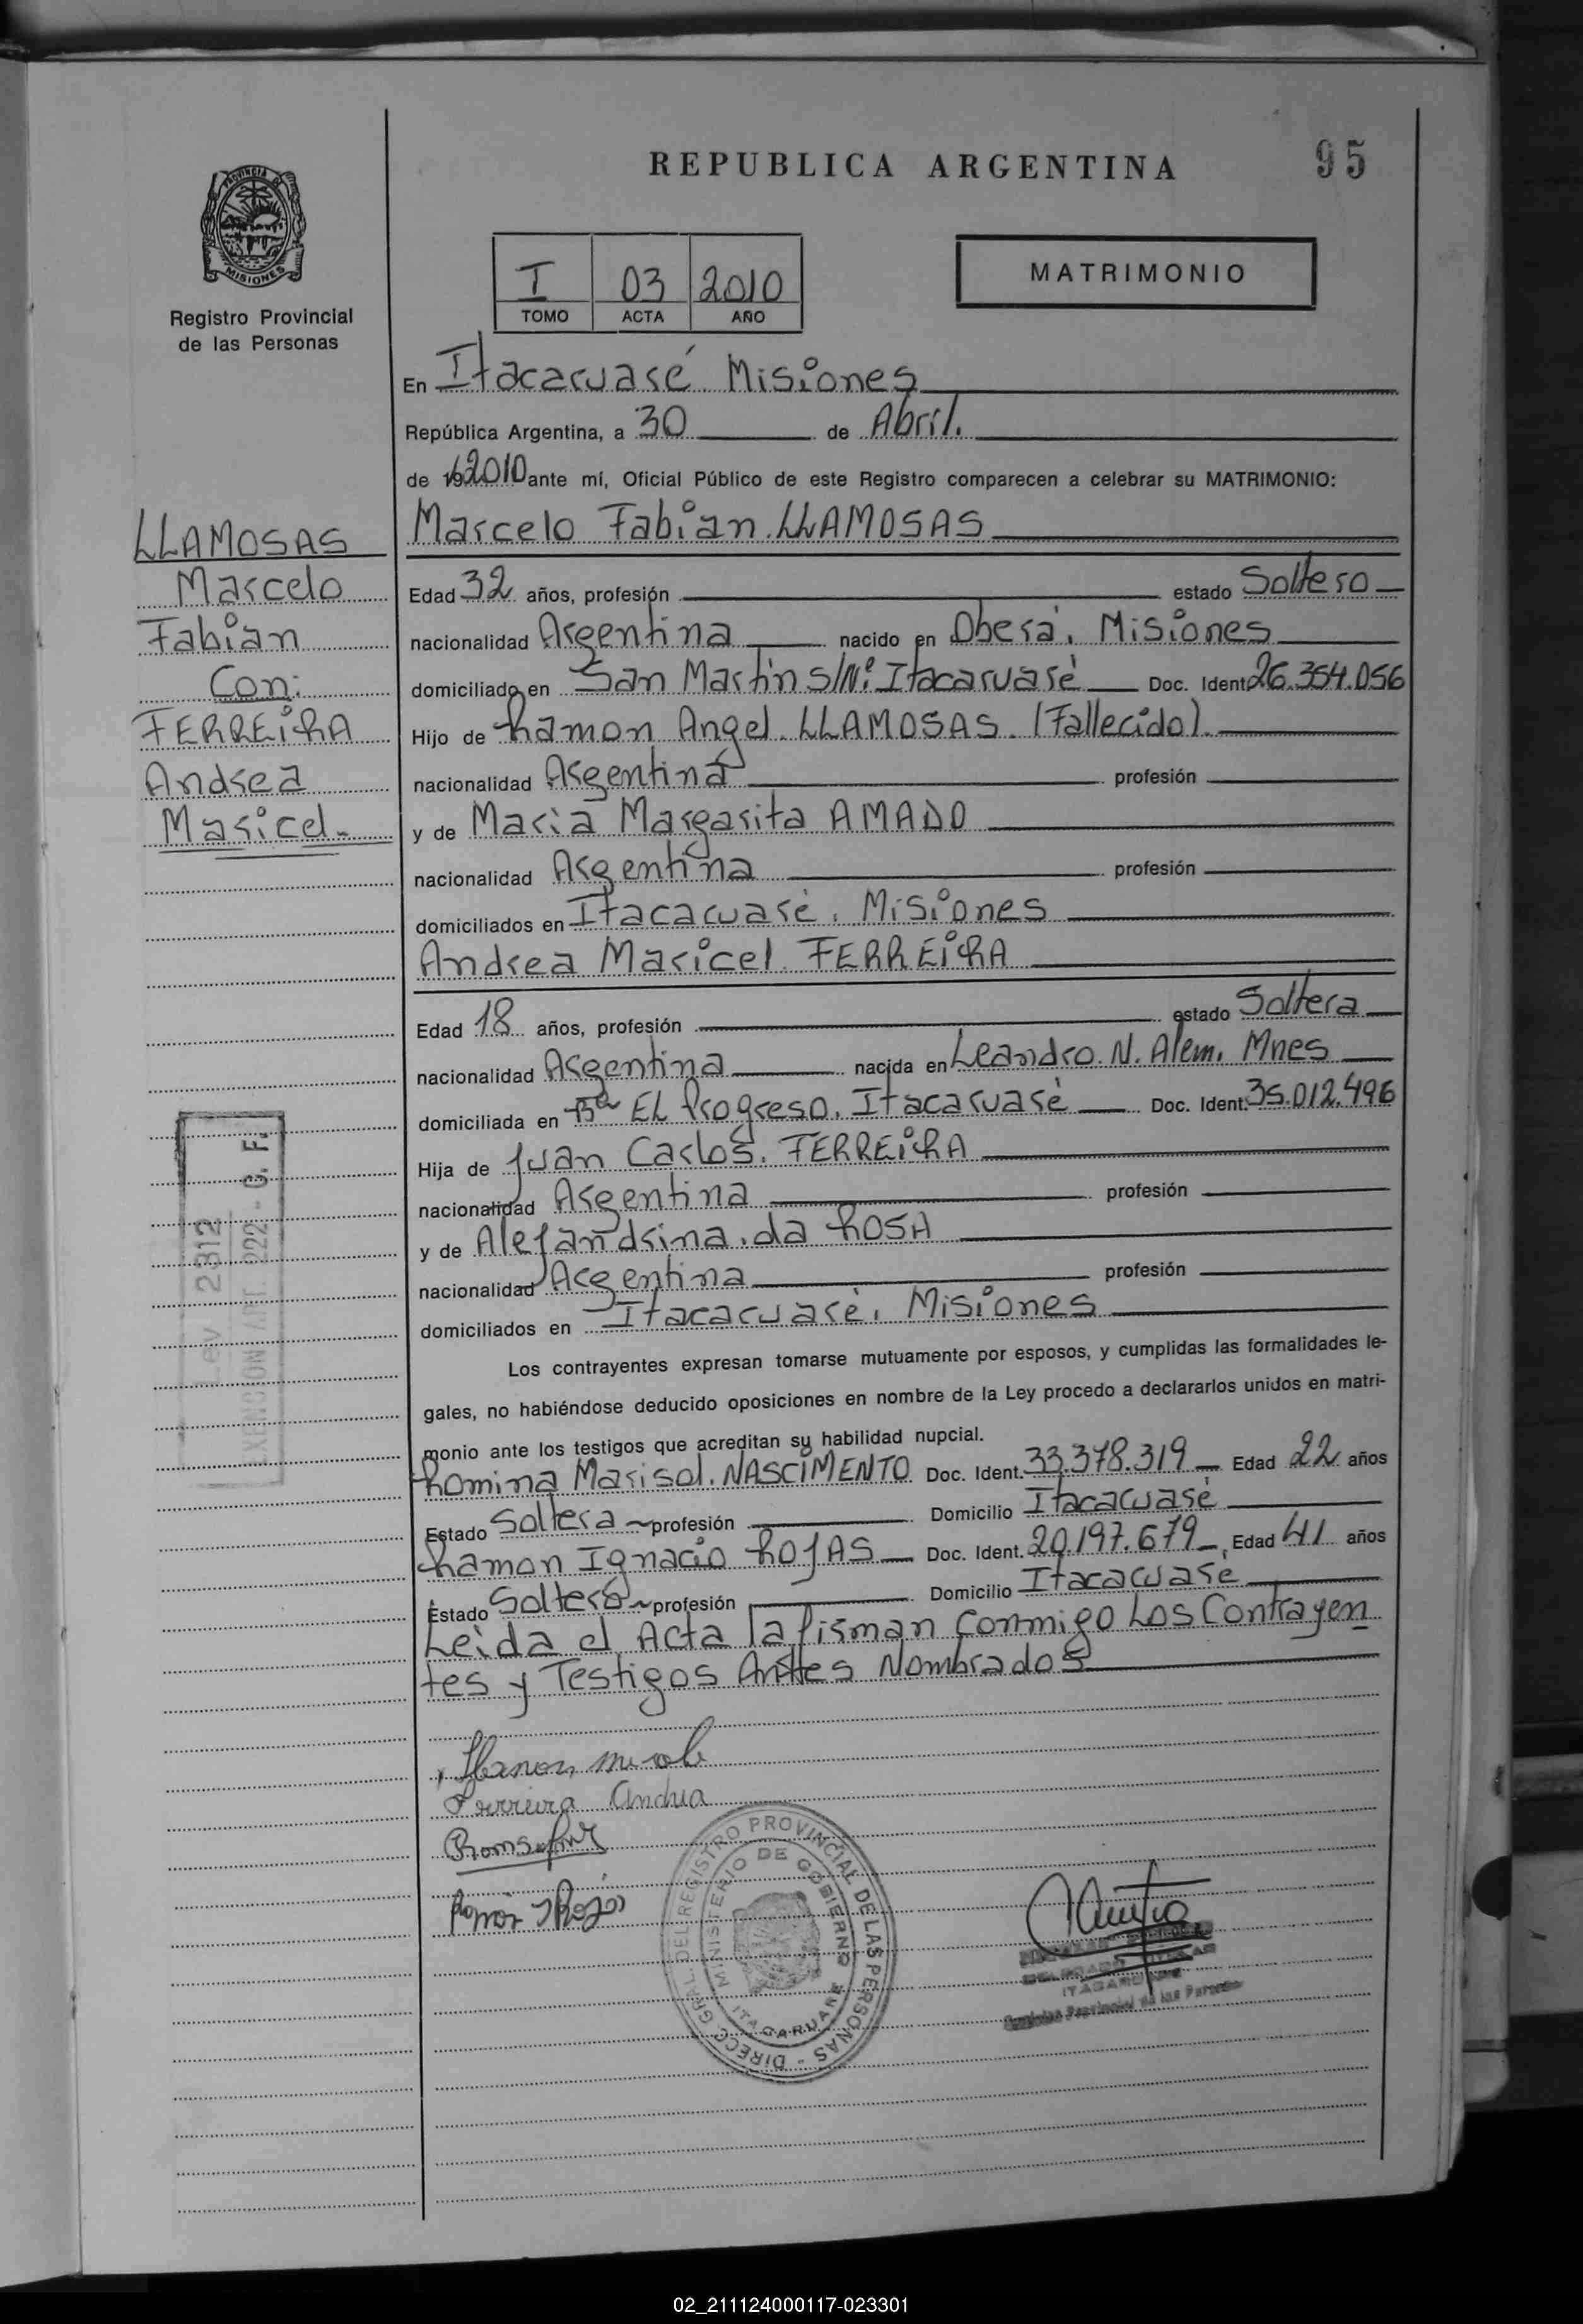 REPUBLICA ARGENTINA
95
PROVINCIA DE
MISIONES
Registro Provincial
de las Personas
I 03 2010
TOMO ACTA AÑO
MATRIMONIO
En Itacaruaré Misiones
República Argentina, a 30 de Abril.
de 192010 ante mí, Oficial Público de este Registro comparecen a celebrar su MATRIMONIO:
Marcelo Fabian LLAMOSAS
LLAMOSAS
Marcelo
Fabian
Con:
FERREiRA
Andrea
Maricel.
Edad 32 años, profesión estado Soltero
nacionalidad Argentina nacido en Oberá, Misiones
domiciliado en San Martin S/Nº Itacaruaré Doc. Ident. 26.354.056
Hijo de Ramon Angel LLAMOSAS. (Fallecido).
nacionalidad Argentina profesión
y de Maria Margarita AMADO
nacionalidad Argentina profesión
domiciliados en Itacaruaré, Misiones
Andrea Maricel FERREiRA
Edad 18 años, profesión estado Soltera
nacionalidad Argentina nacida en Leandro N. Alem, Mnes
domiciliada en Bº EL Progreso, Itacaruaré Doc. Ident. 35.012.496
Hija de Juan Carlos. FERREiRA
nacionalidad Argentina profesión
y de Alejandrina. da ROSA
nacionalidad Argentina profesión
domiciliados en Itacaruaré, Misiones
Ley 2312
EXENCION ART. 222 - C. F.
Los contrayentes expresan tomarse mutuamente por esposos, y cumplidas las formalidades le-
gales, no habiéndose deducido oposiciones en nombre de la Ley procedo a declararlos unidos en matri-
monio ante los testigos que acreditan su habilidad nupcial.
Romina Marisol. NASCiMENTO Doc. Ident. 33.378.319 Edad 22 años
Estado Soltera profesión Domicilio Itacaruaré
Ramon Ignacio ROJAS Doc. Ident. 20.197.679 Edad 41 años
Estado Soltero profesión Domicilio Itacaruaré
Leida el Acta la firman conmigo Los Contrayen
tes y Testigos Antes Nombrados
Ferreira Andrea
Ramón I Rojas
DIRECC. GRAL. DEL REGISTRO PROVINCIAL DE LAS PERSONAS
MINISTERIO DE GOBIERNO
ITACARUARE
DELEGADO TITULAR
ITACARUARE
Registro Provincial de las Personas
02_211124000117-023301